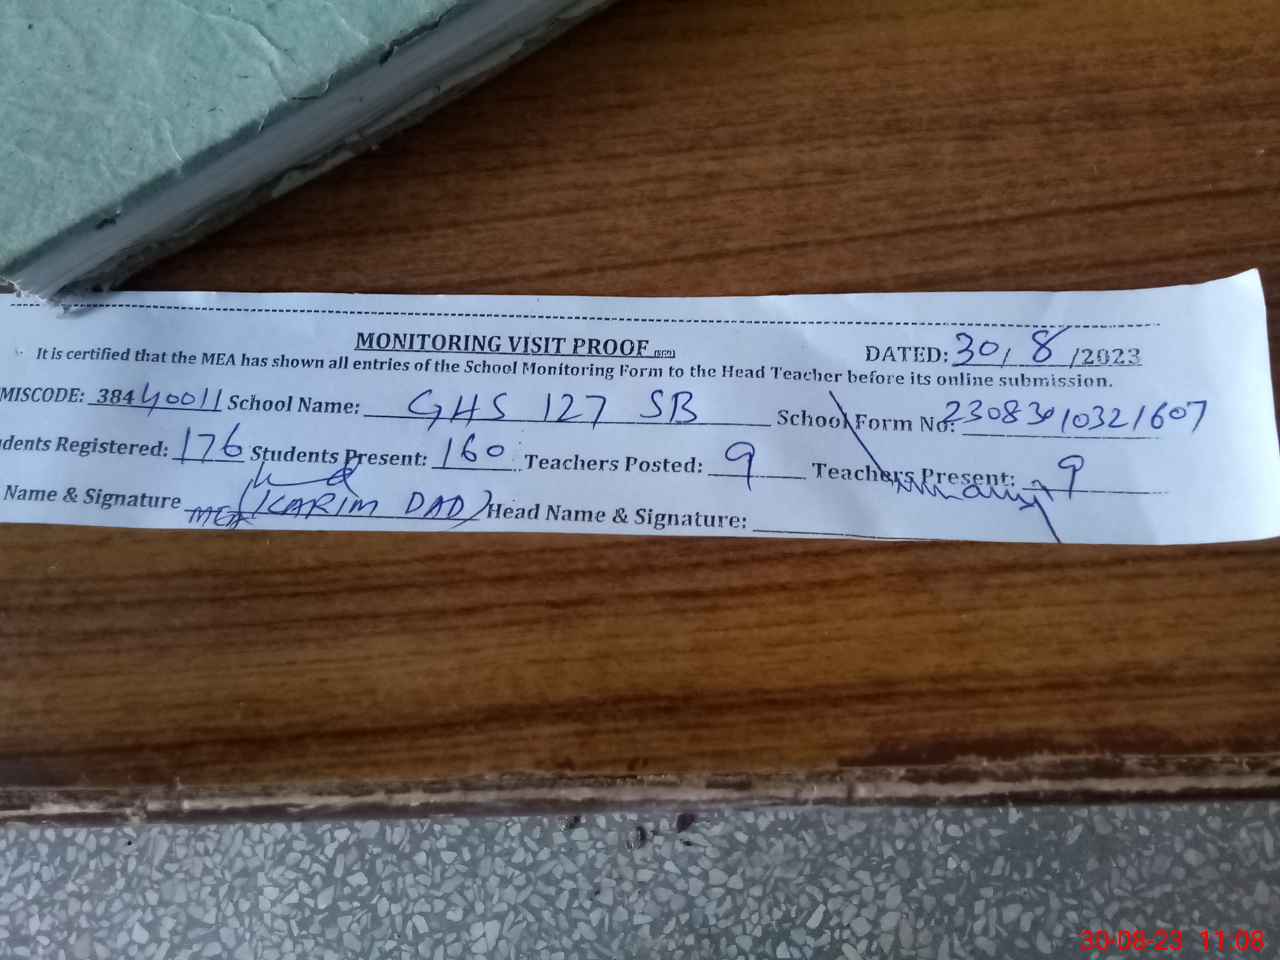 MONITORING VISIT PROOF
DATED: 30/8/2023
It is certified that the MEA has shown all entries of the School Monitoring Form to the Head Teacher before its online submission.
MISCODE: 38440011 School Name: GHS 127 SB School Form No: 2308301032 1607
dents Registered: 176 Students Present: 160 Teachers Posted: 9 Teachers Present: 9
Name & Signature MEA (KARIM DAD) Head Name & Signature:
30-08-23 11:08